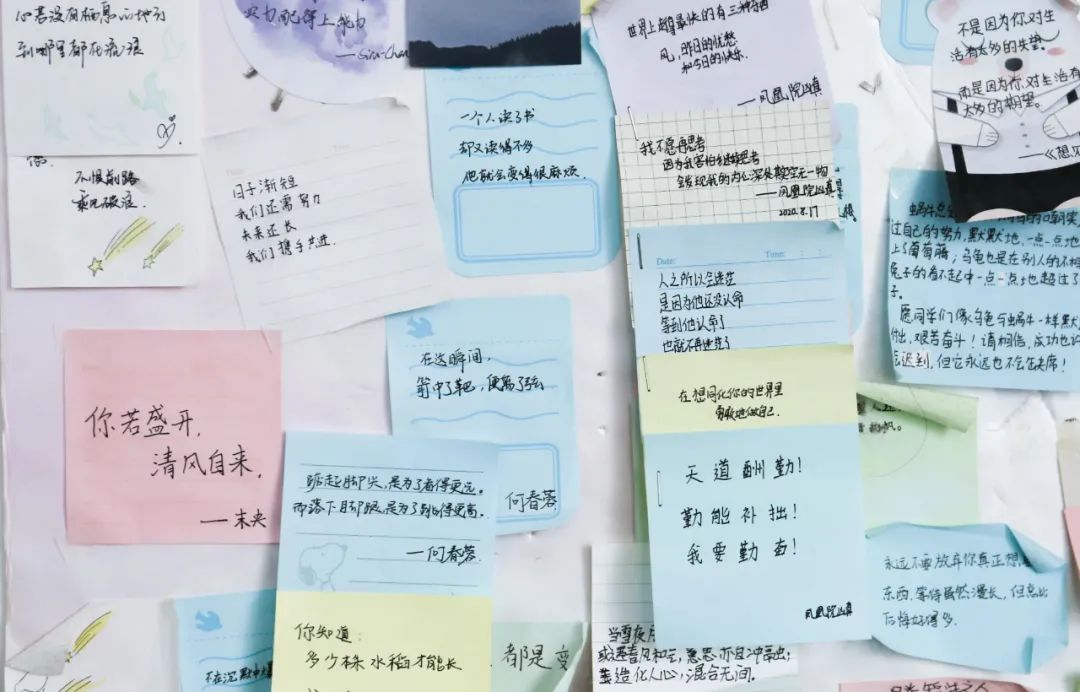 心若没有栖息的地方
到哪里都在流浪
实力配得上能力
不惧前路
乘风破浪
日子渐短
我们还需努力
未来还长
我们携手共进.
一个人读了书
却又读得不多
他就会变得很麻烦.
世界上越冒最快的有三种东西
风,昨日的忧愁
和今日的快乐.
——凤凰院凶真
我不愿再思考
因为我害怕继续思考
会发现我的内心深处其空无一物
——凤凰院凶真
2020.8.17
Date: Time: : :
人之所以会迷茫
是因为他还没认命
等到他认命了
也就不再迷茫了
在想同化你的世界里
勇敢地做自己.
天道酬勤!
勤能补拙!
我要勤奋!
凤凰院凶真
不是因为你对生
活有太多的失望.
而是因为你对生活有
太多的期望。
——《想见
蜗牛总
过自己的努力,默默地、一点一点地
上了葡萄藤;乌龟也是在别人的不相
兔子的看不起中一点一点地超过了
子。
愿同学们像乌龟与蜗牛一样默
付出,艰苦奋斗!请相信,成功也许
会迟到,但它永远也不会缺席!
永远不要放弃你真正想
东西.等待虽然漫长,但总比
后悔好得多.
在这瞬间,
箭中了靶,便离了弦
何春蓉
你若盛开,
清风自来.
——未央
踮起脚尖,是为了看得更远。
而落下脚跟,是为了跳得更高.
——何春蓉.
你知道:
多少株水稻才能长
都是变
不在沉默中爆
当雪夜月
或遇春风和气,意思亦自冲融;
造化人心,混合无间.